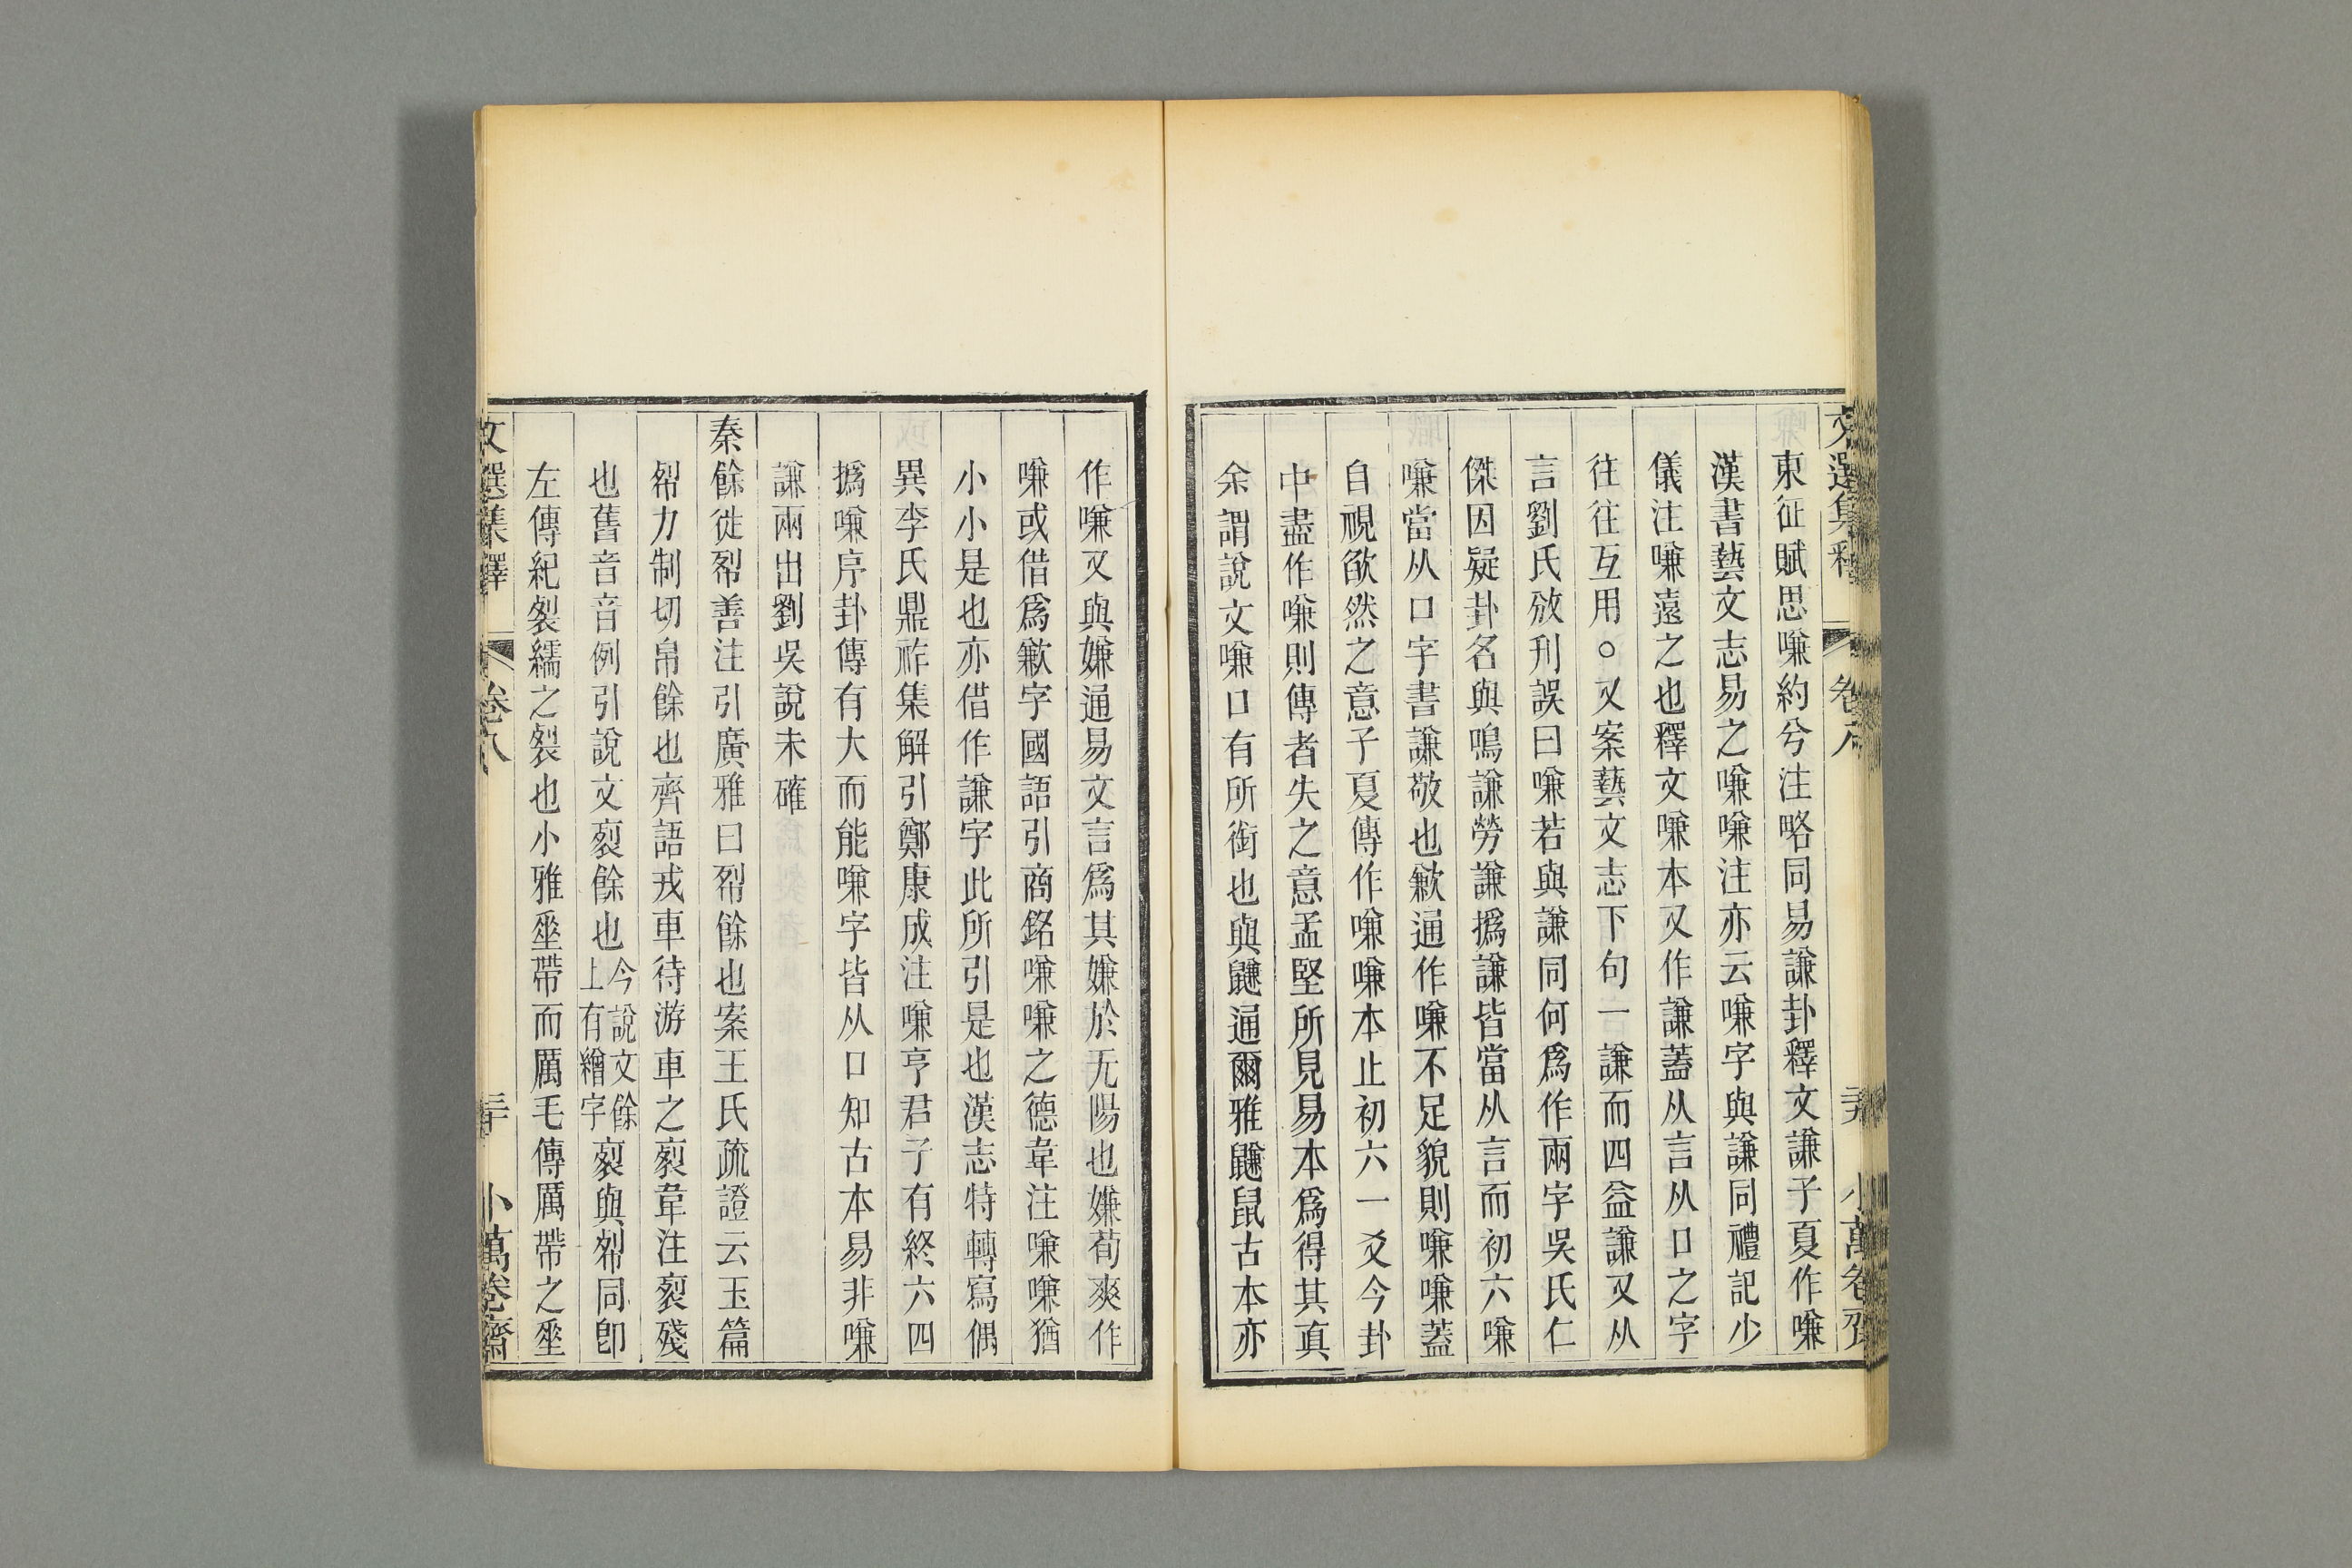 文選集釋 卷八 小萬卷齋
東征賦思嗛約兮注略同易謙卦釋文謙子夏作嗛
漢書藝文志易之嗛嗛注亦云嗛字與謙同禮記少
儀注嗛遠之也釋文嗛本又作謙蓋从言从口之字
往往互用○又案藝文志下句一謙而四益謙又从
言劉氏攽刋誤曰嗛若與謙同何爲作兩字吳氏仁
傑因疑卦名與鳴謙勞謙撝謙皆當从言而初六嗛
嗛當从口字書謙敬也歉通作嗛不足貌則嗛嗛蓋
自視欿然之意子夏傳作嗛嗛本止初六一爻今卦
中盡作嗛則傳者失之意孟堅所見易本爲得其眞
余謂說文嗛口有所銜也與鼸通爾雅鼸鼠古本亦
作嗛又與嫌通易文言爲其嫌於无陽也嫌荀爽作
嗛或借爲歉字國語引商銘嗛嗛之德韋注嗛嗛猶
小小是也亦借作謙字此所引是也漢志特轉寫偶
異李氏鼎祚集解引鄭康成注嗛亨君子有終六四
撝嗛序卦傳有大而能嗛字皆从口知古本易非嗛
謙兩出劉吳說未確
秦餘徙㡜善注引廣雅曰㡜餘也案王氏疏證云玉篇
㡜力制切帛餘也齊語戎車待游車之裂韋注裂殘
也舊音音例引說文裂餘也今說文餘上有繒字裂與㡜同卽
左傳紀裂繻之裂也小雅垂帶而厲毛傳厲帶之垂
文選集釋 卷八 三十 小萬卷齋